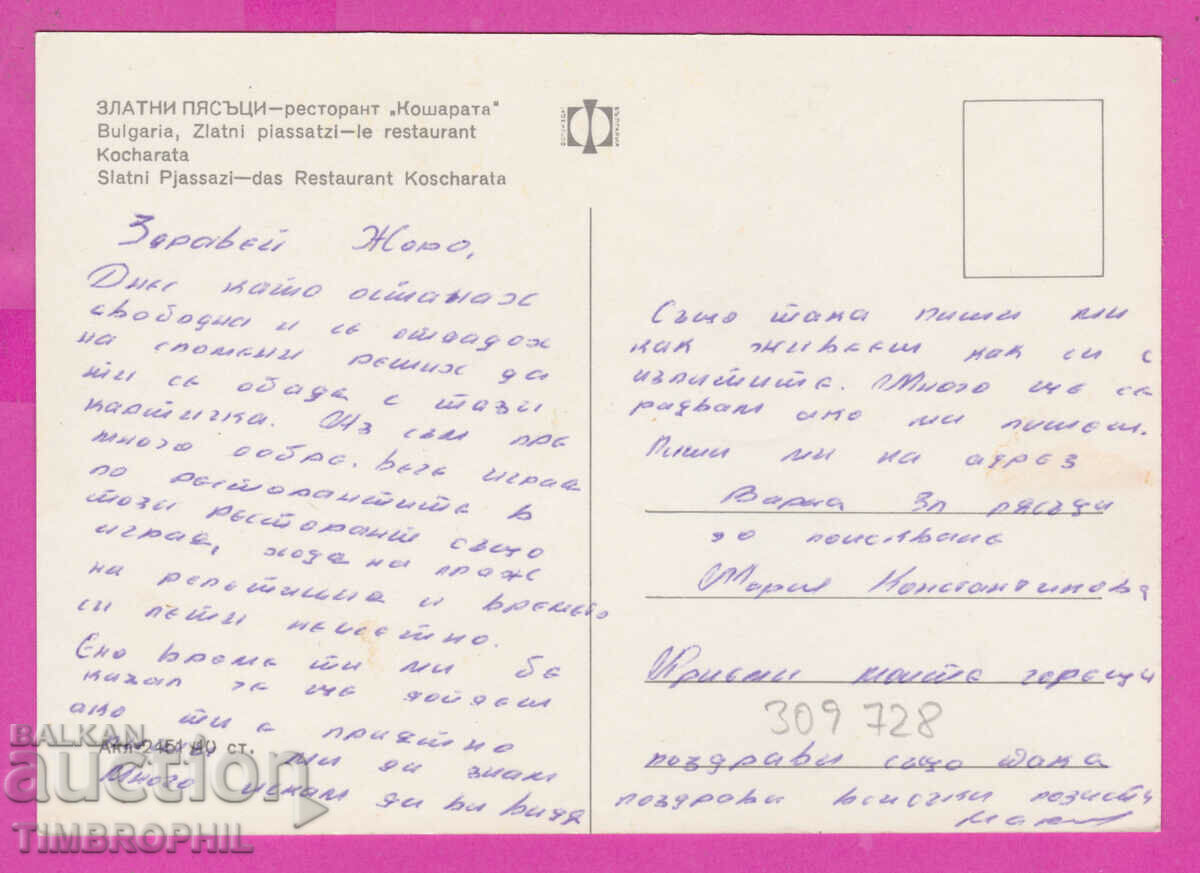 ЗЛАТНИ ПЯСЪЦИ—ресторант „Кошарата"
Bulgaria, Zlatni piassatzi—le restaurant
Kocharata
Slatni Pjassazi—das Restaurant Koscharata
Здравей Жоро,
Днес като останах
свободна и се отдадох
на спомени реших да
ти се обада с тази
картичка. Аз съм пре
много добре. Вече играя
по ресторантите в
този ресторант също
играя, хода на плаж
на репетиция и времето
си лети неусетно.
Ено време ти ми бе
казал че ще дойдеш
ако ти е приятно
ми да знам
Много искам да ви видя
Акл-2451 40 ст.
Също така пиши ми
как живееш как си с
изпитите. Много ще се
радвам ако ми пишеш.
Пиши ми на адрез
Варна Зл пясъци
до поискване
Мария Константинова
Приеми моите горещи
309 728
поздрави също така
поздрави всички
BALKAN
auction
TIMBROPHIL